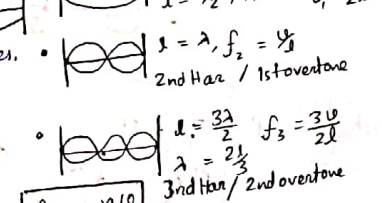 es.
l = λ, f₂ = v/l
2nd Har / 1st overtone
l = 3λ/2 f₃ = 3v/2l
λ = 2l/3
3nd Har / 2nd overtone